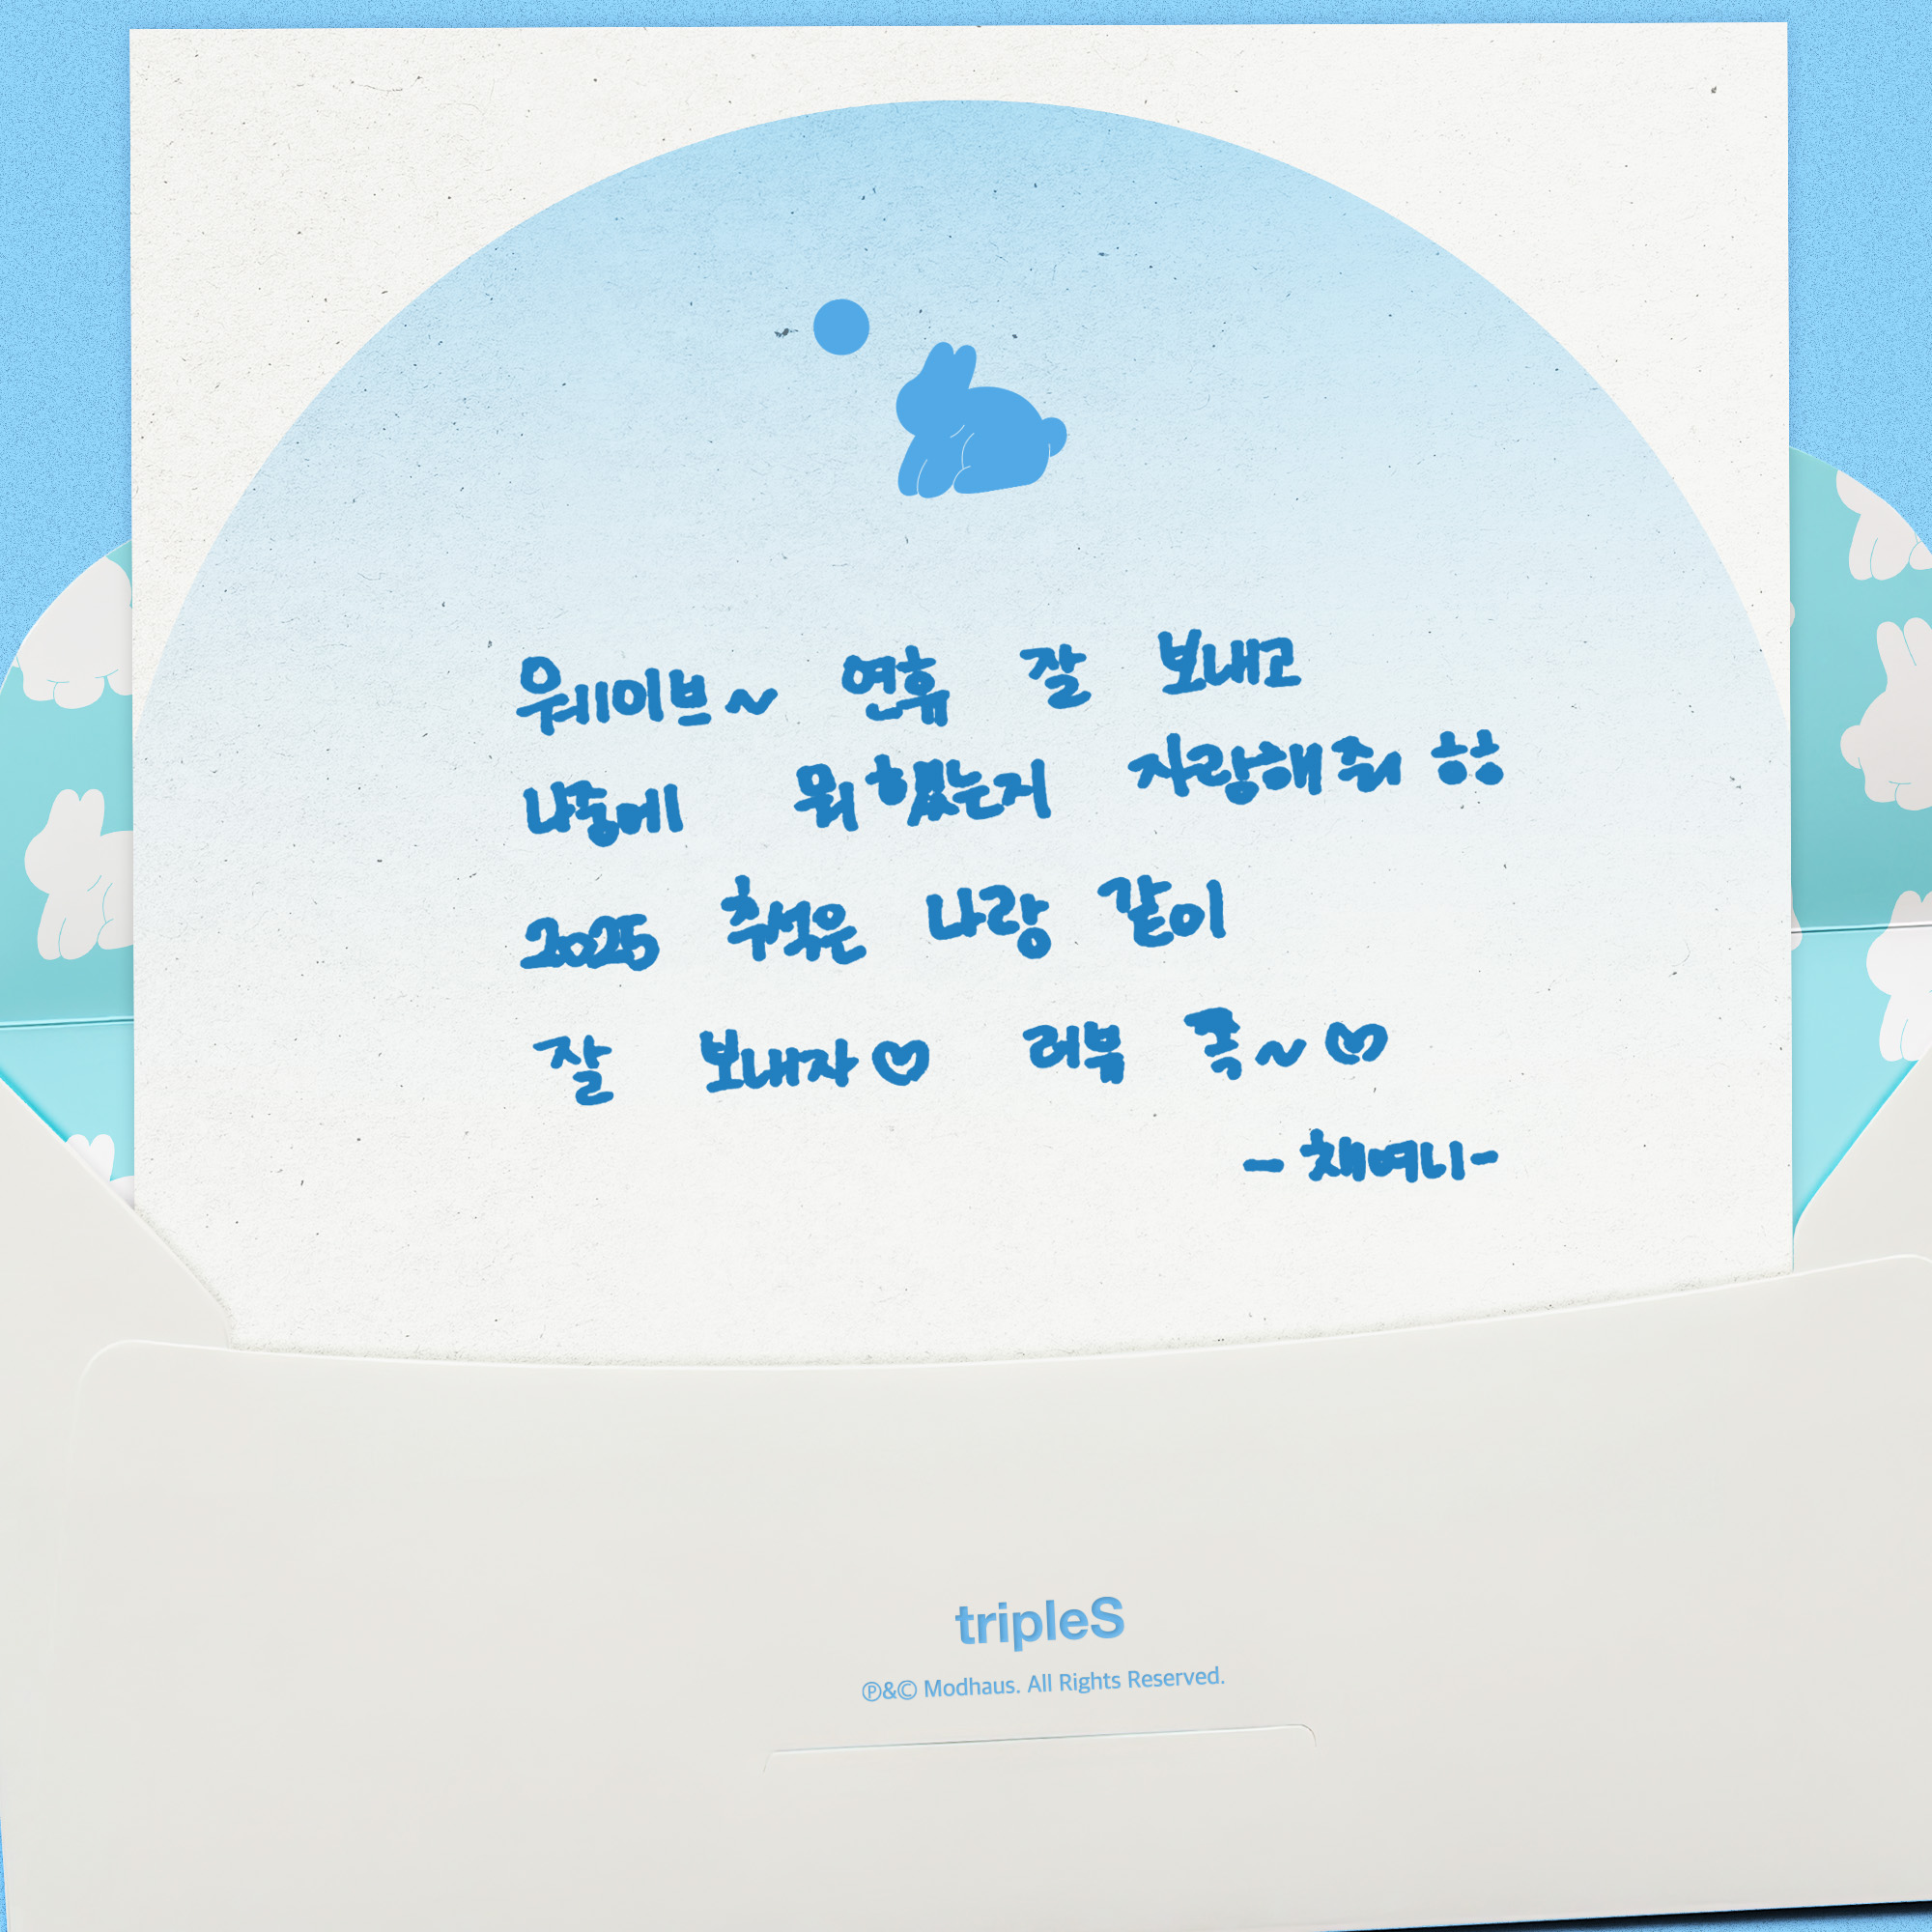 웨이브~ 연휴 잘 보내고
나중에 뭐했는지 자랑해줘 ㅎㅎ
2025 추석은 나랑 같이
잘 보내자♡ 러뷰 쪽~♡
-채여니-
tripleS
℗&© Modhaus. All Rights Reserved.